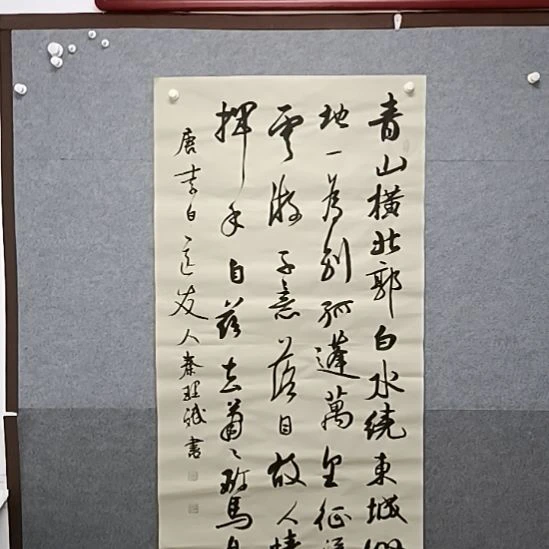 青山橫北郭白水繞東城
地一為別孤蓬萬里征
雲游子意落日故人情
揮手自茲去蕭々班馬
唐李白送友人秦理書